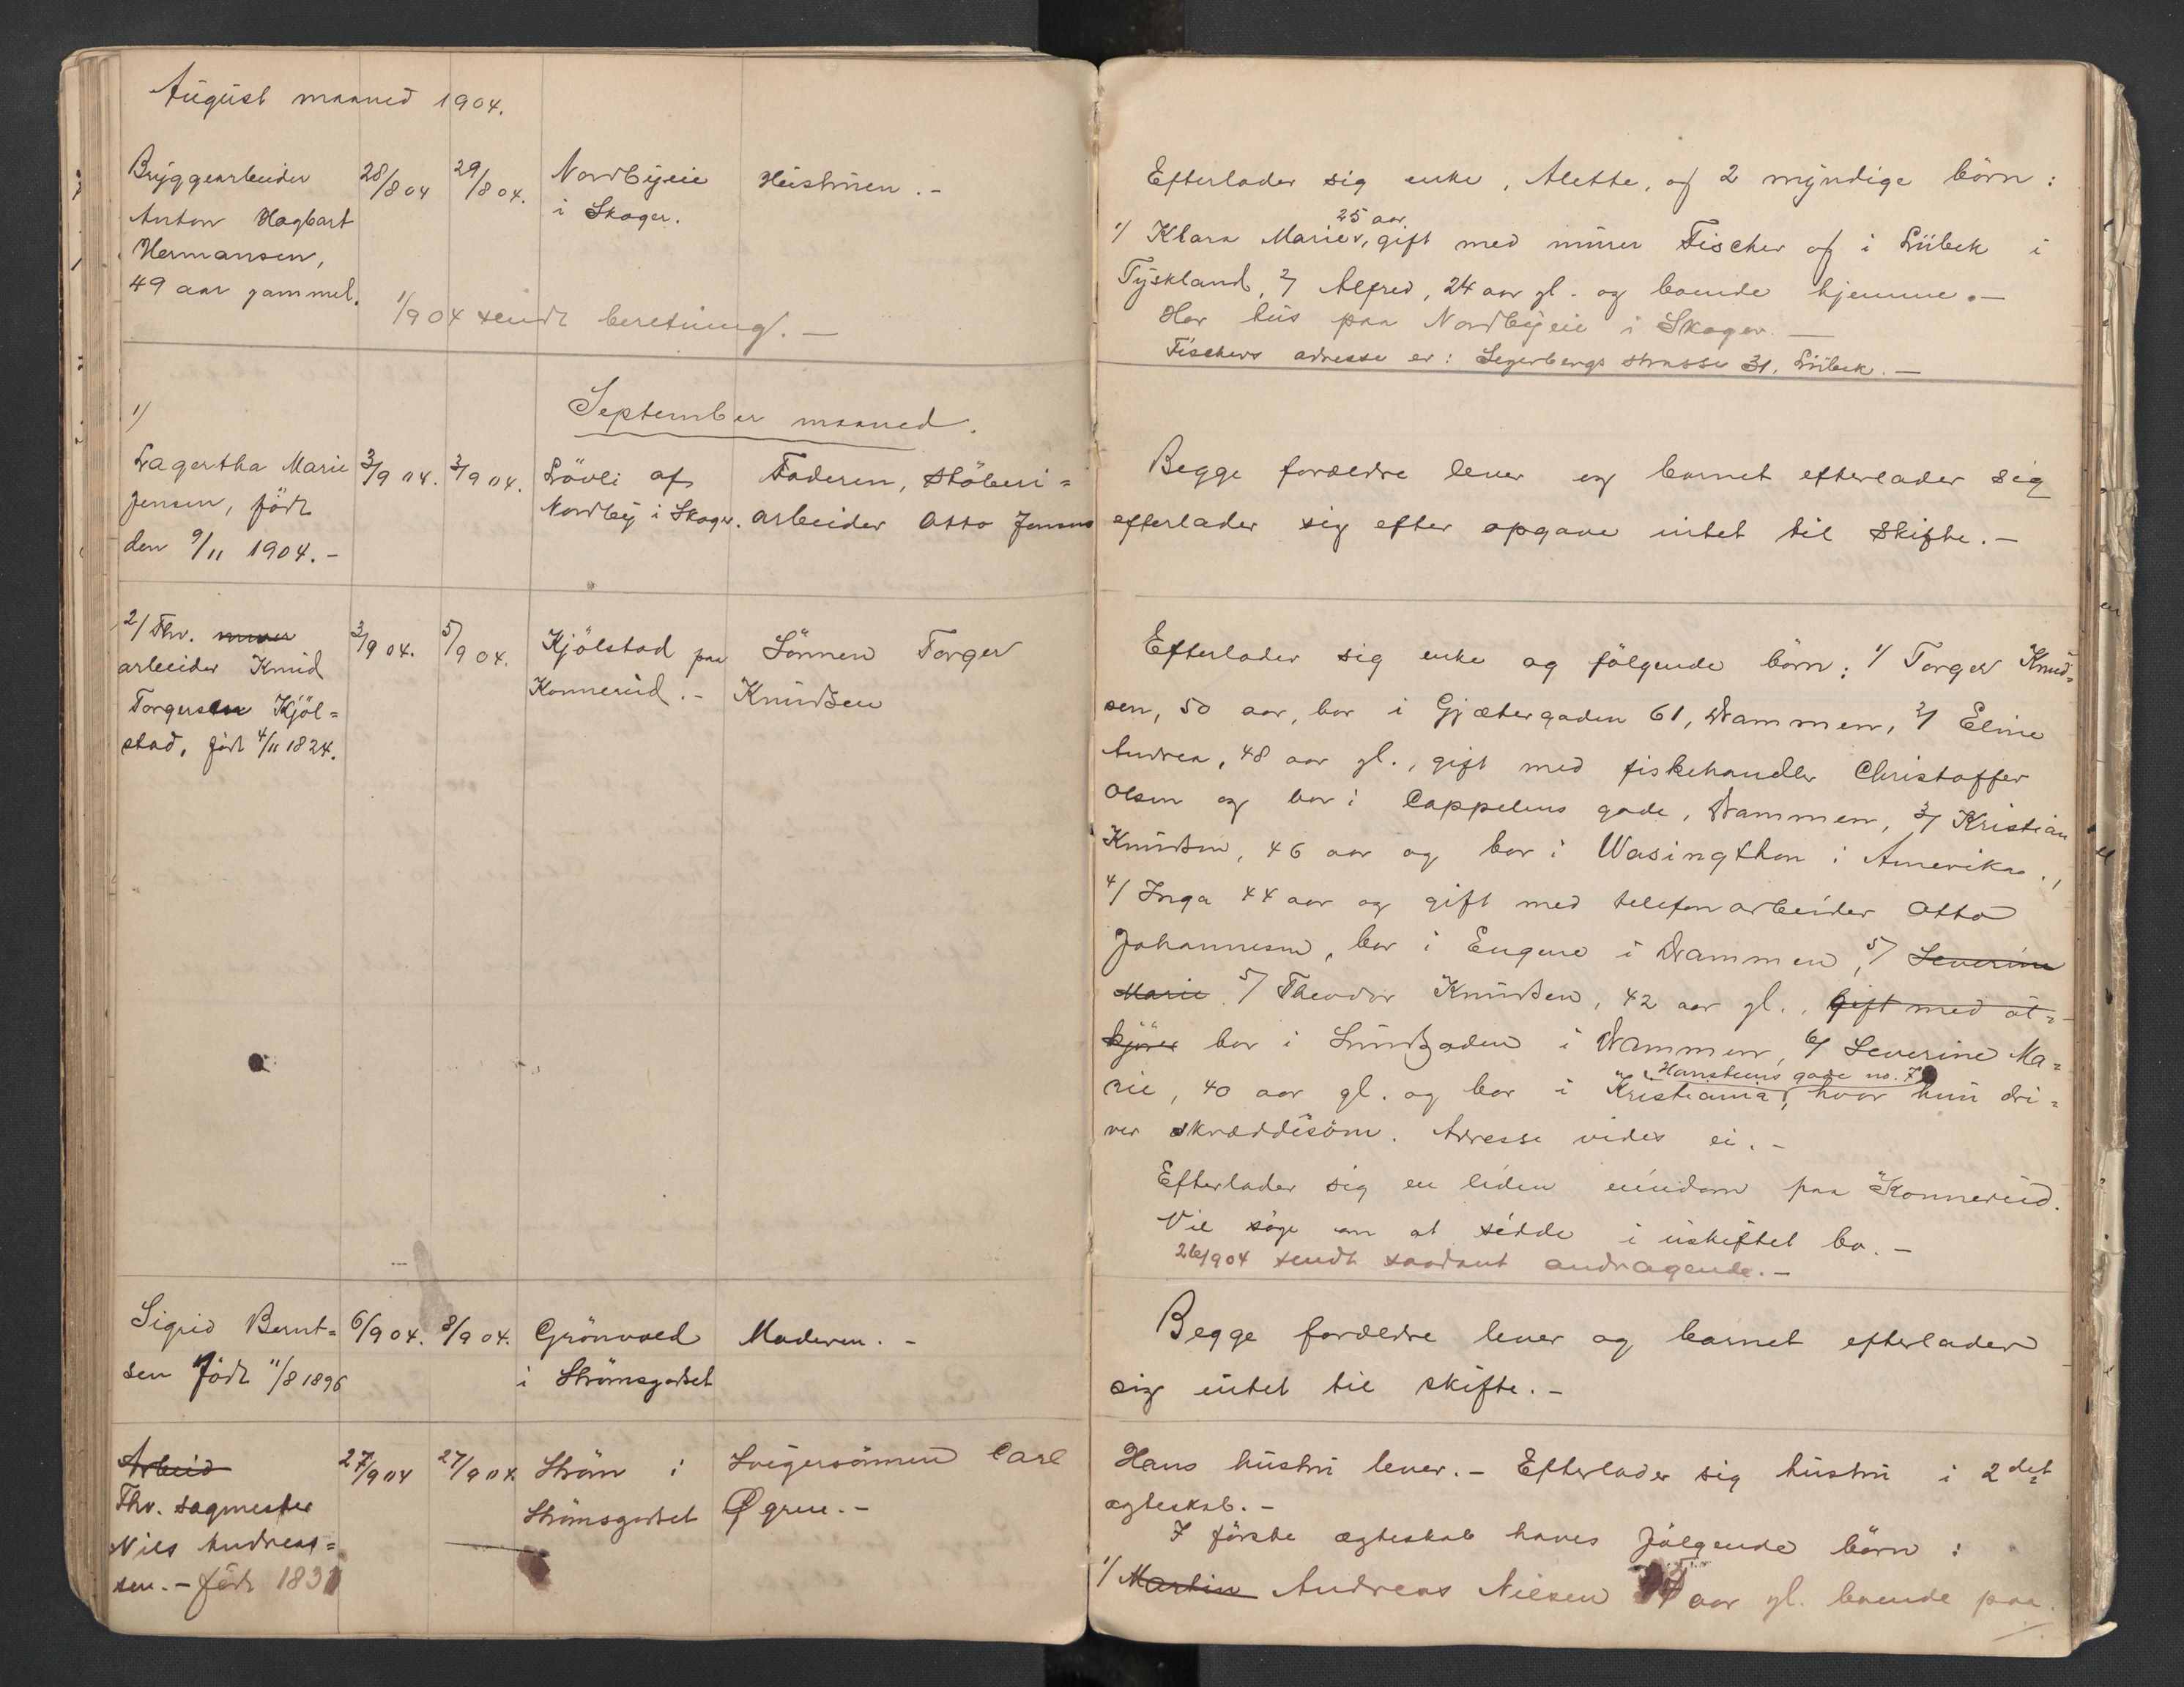 August maaned 1904.
Bryggearbeider 28/8 04 29/8 04. Nordbyeie Hustruen. -
Anton Hagbart i Skoger.
Hermansen,
49 aar gammel.
1/9 04 sendt beretning. -
September maaned.
1/
Lagertha Marie 3/9 04. 3/9 04. Lövli af Faderen, Stöberi=
Jensen, född Nordby i Skoger. arbeider Otto Jensen
den 9/11 1904. -
2/ Fhv. murer 3/9 04. 5/9 04. Kjölstad paa Sönnen Torger
arbeider Knud Konnerud. - Knudsen
Torgersen Kjöl=
stad, född 4/11 1824.
Sigrid Bernt= 6/9 04. 8/9 04. Grönvold Moderen. -
sen född 11/8 1896 i Strömsgodset
Arbeid 27/9 04 27/9 04 Ström i Svigersönnen Carl
Fhv. sagmester Strömsgodset Øgree. -
Nils Andreas=
sen. - född 1831
Efterlader sig enke, Alette, og 2 myndige börn:
25 aar
1/ Klara Marie, gift med murer Fischer og i Lübek i
Tyskland, 2/ Alfred, 24 aar gl. og boende hjemme. -
Har hus paa Nordbyeie i Skoger. -
Fischers adresse er: Segerbergs strasse 31. Lübek. -
Begge forældre lever og barnet efterlader sig
efterlader sig efter opgave intet til skifte. -
Efterlader sig enke og fölgende börn: 1/ Torger Knud=
sen, 50 aar, bor i Gjætergaden 61, Drammen, 2/ Eline
Andrea, 48 aar gl., gift med fiskehandler Christoffer
Olsen og bor i Cappelens gade, Drammen, 3/ Kristian
Knudsen, 46 aar og bor i Wasingthon i Amerika.,
4/ Inga 44 aar og gift med telefonarbeider Otto
Johannesen, bor i Engene i Drammen, 5/ Severine
Marie. 5/ Theodor Knudsen, 42 aar gl., gift med öl=
kjörer bor i Lundgaden i Drammen, 6/ Severine Ma=
Hansteens gade no. 7
rie, 40 aar gl. og bor i Kristiania, hvor hun dri=
ver skræddesöm. Adresse vides ei. -
Efterlader sig en liden eiendom paa Konnerud.
Vil söge om at sidde i uskiftet bo. -
26/9 04 sendt saadant andragende. -
Begge forældre lever og barnet efterlader
sig intet til skifte. -
Hans hustru lever. - Efterlader sig hustru i 2det
ægteskab. -
I förste ægteskab haves fölgende börn:
1/ Martin Andreas Nilsen aar gl. boende paa